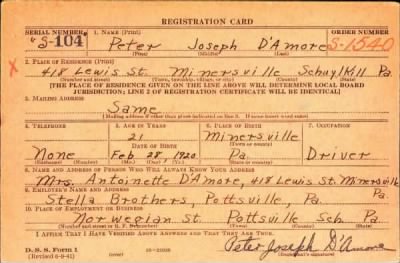 REGISTRATION CARD
SERIAL NUMBER 1. NAME (Print) ORDER NUMBER
S-104 Peter Joseph D'Amore S-1540
(First) (Middle) (Last)
2. PLACE OF RESIDENCE (Print)
x 418 Lewis St. Minersville Schuylkill Pa.
(Number and street) (Town, township, village, or city) (County) (State)
[THE PLACE OF RESIDENCE GIVEN ON THE LINE ABOVE WILL DETERMINE LOCAL BOARD
JURISDICTION; LINE 2 OF REGISTRATION CERTIFICATE WILL BE IDENTICAL]
3. MAILING ADDRESS
Same
[Mailing address if other than place indicated on line 2. If same insert word same]
4. TELEPHONE 5. AGE IN YEARS 6. PLACE OF BIRTH 7. OCCUPATION
21 Minersville
DATE OF BIRTH (Town or county)
None Feb 28 1920 Pa. Driver
(Exchange) (Number) (Mo.) (Day) (Yr.) (State or country)
8. NAME AND ADDRESS OF PERSON WHO WILL ALWAYS KNOW YOUR ADDRESS
Mrs. Antoinette D'Amore, 418 Lewis St. Minersville
9. EMPLOYER'S NAME AND ADDRESS
Stella Brothers, Pottsville, Pa.
10. PLACE OF EMPLOYMENT OR BUSINESS
Norwegian St. Pottsville Sch. Pa
(Number and street or R. F. D. number) (Town) (County) (State)
I AFFIRM THAT I HAVE VERIFIED ABOVE ANSWERS AND THAT THEY ARE TRUE.
D. S. S. Form 1
(Revised 6-9-41) (over) Peter Joseph D'Amore
(Registrant's signature)